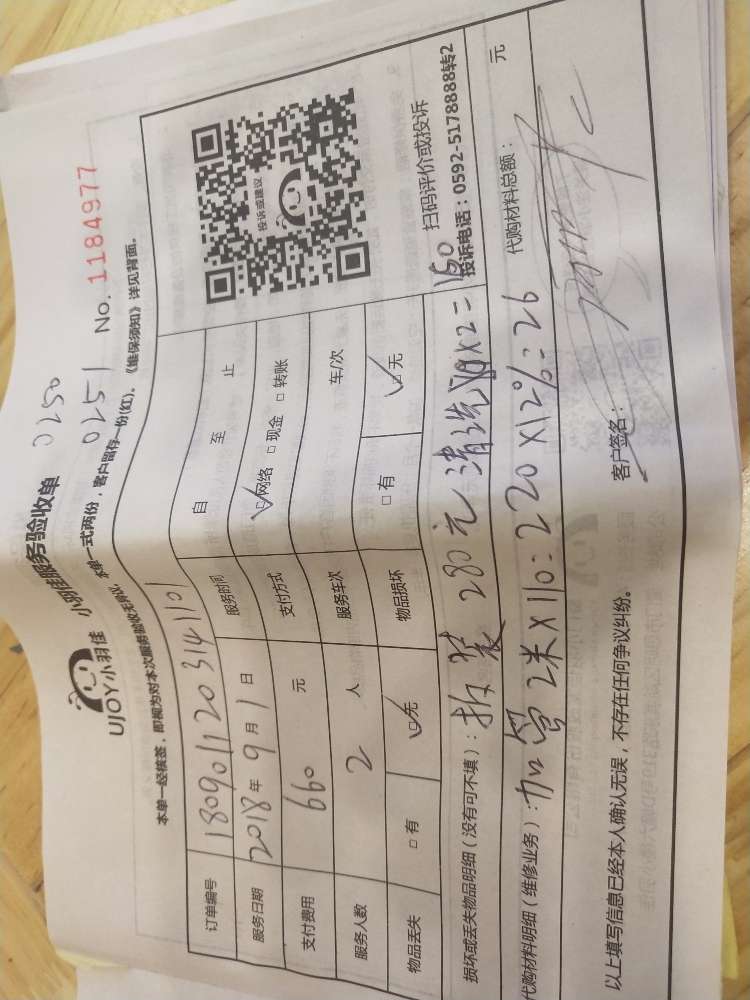 UJOY小羽佳 小羽佳服务验收单 0250
0251
本单一经核签，即视为对本次服务验收无异议。 本单一式两份，客户留存一份(红)。《维保须知》详见背面。
No. 1184977
订单编号 180901120314 1101
服务日期 2018年 9 月 1 日 服务时间 自 至 止
支付费用 660 元 支付方式 ☑网络 □现金 □转账
服务人数 2 人 服务车次 车/次
物品丢失 □有 ☑无 物品损坏 □有 ☑无
投诉或建议
扫码评价或投诉
投诉电话：0592-5178888转2
损坏或丢失物品明细（没有可不填）：拆装 280元 清洗 80X2=160
代购材料明细（维修业务）：加管2米X110=220X12%=26 代购材料总额： 元
以上填写信息已经本人确认无误，不存在任何争议纠纷。 客户签名：